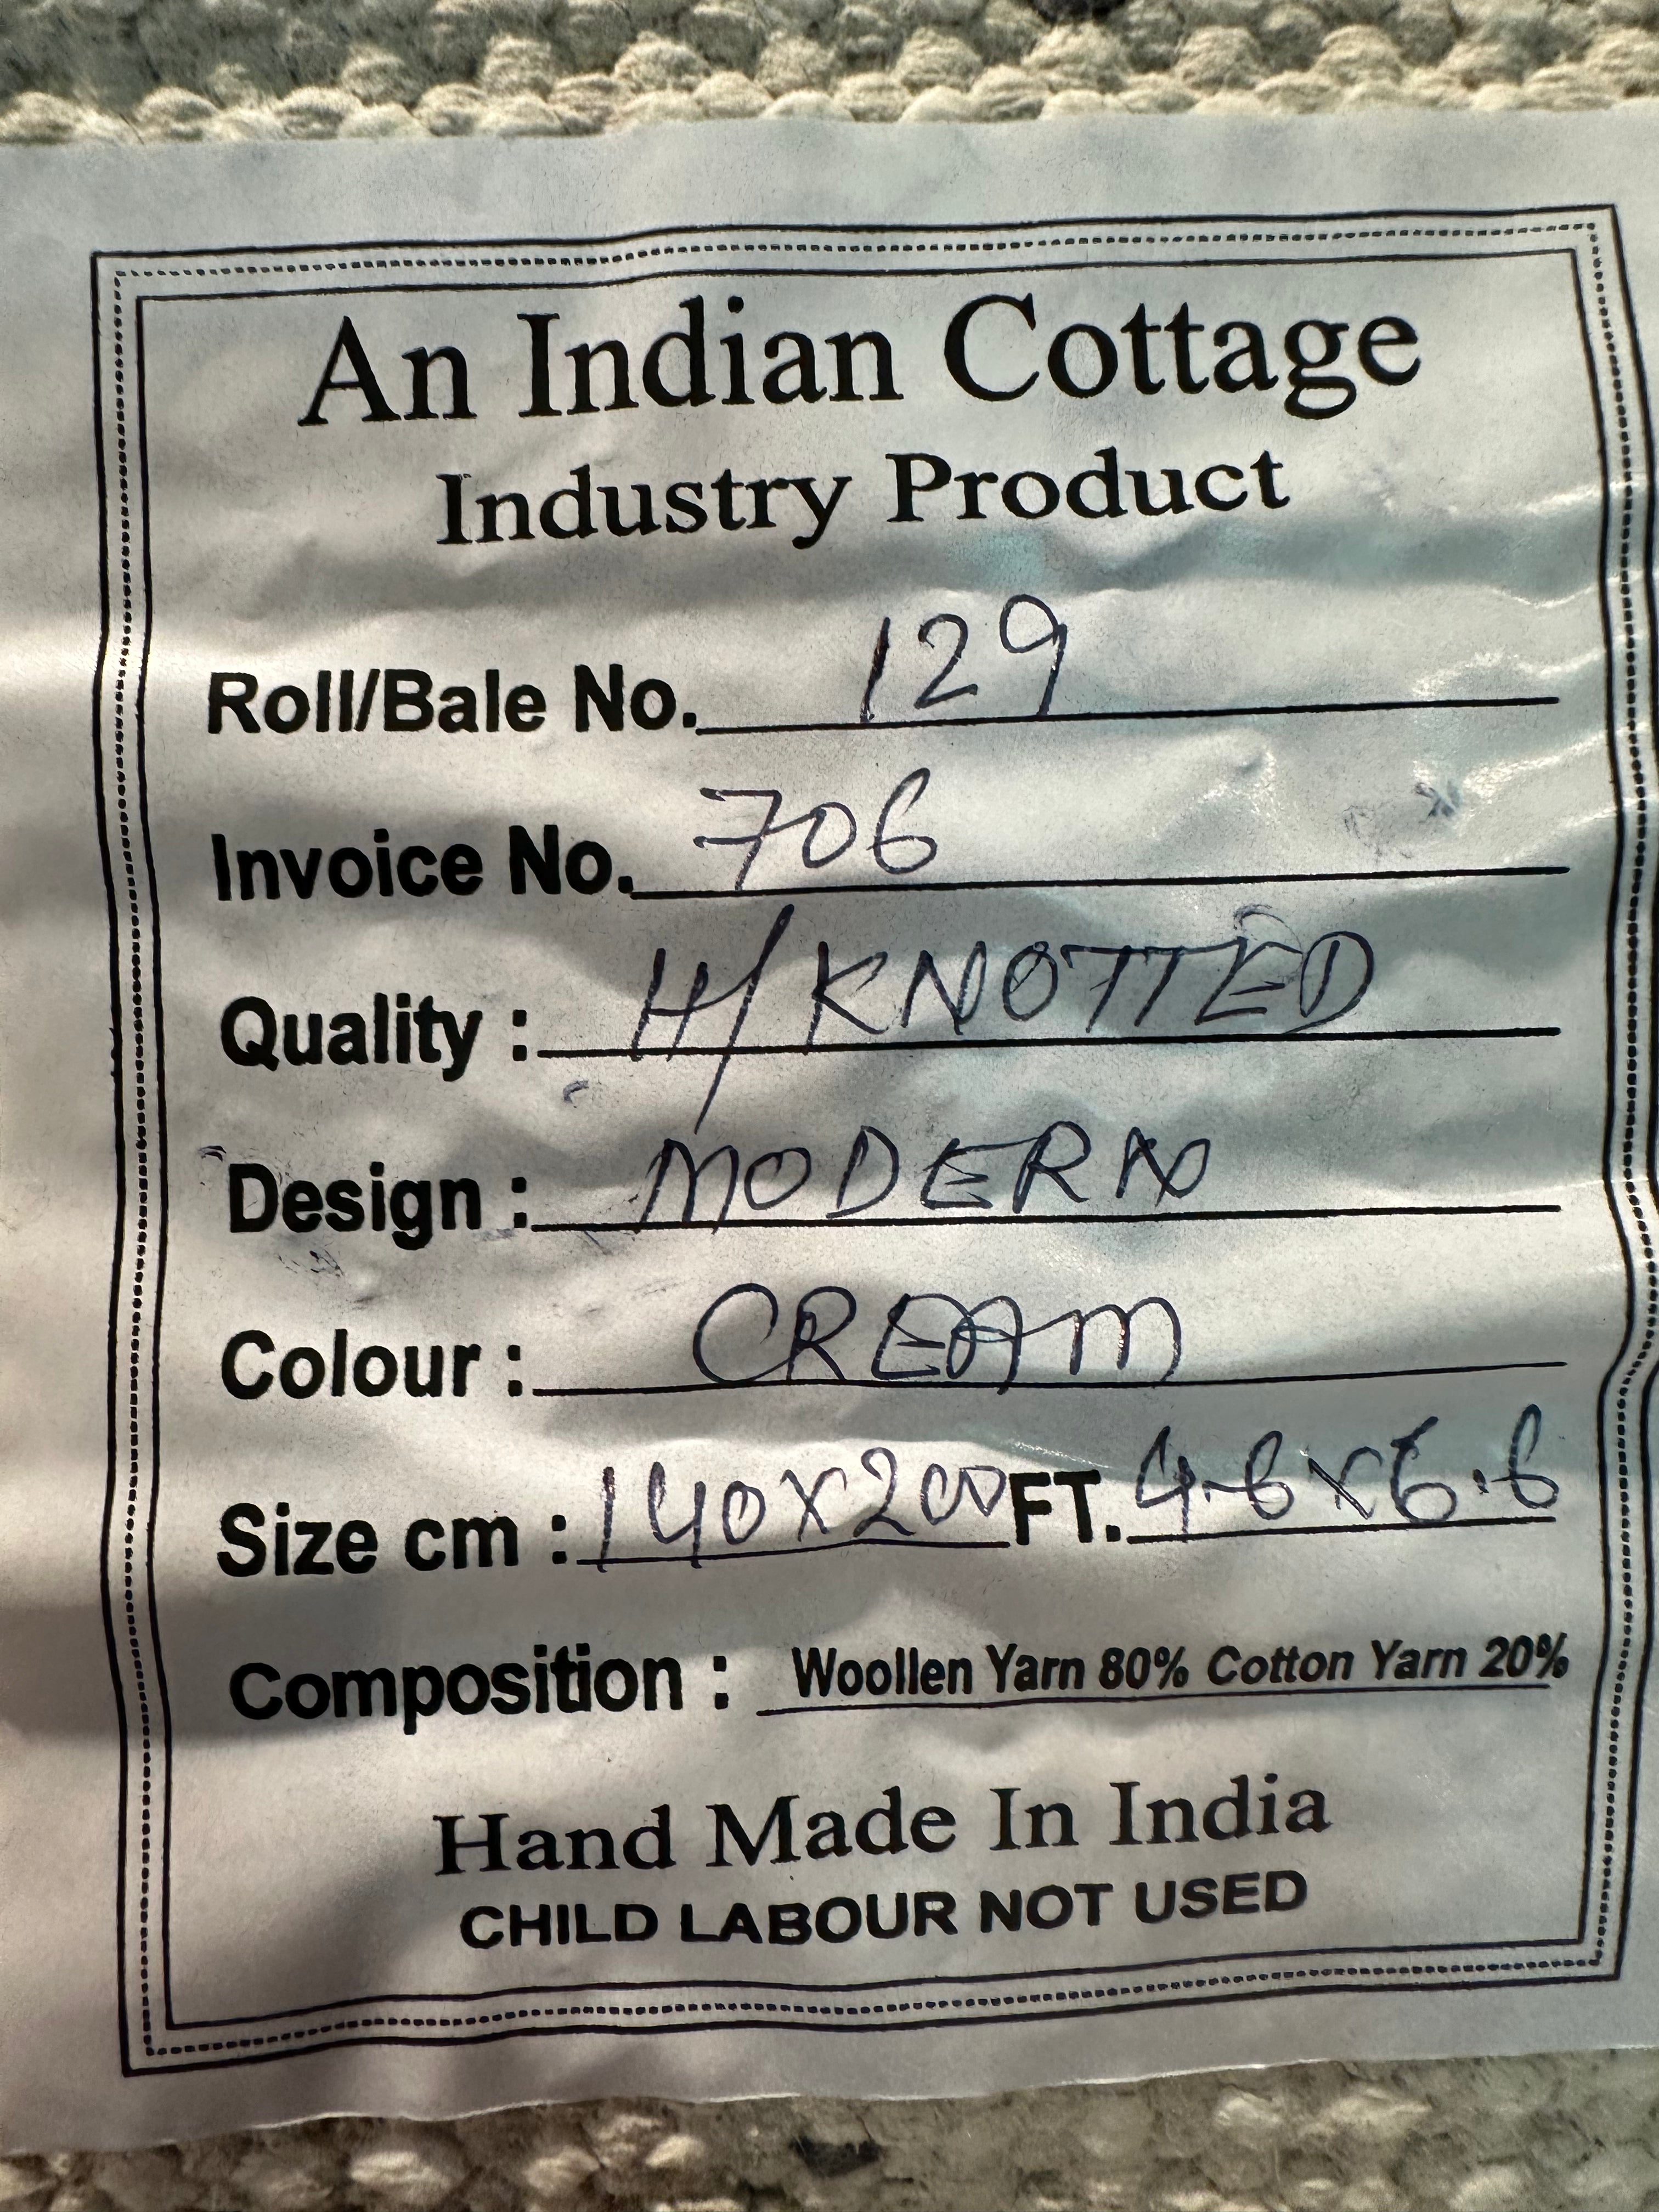 An Indian Cottage
Industry Product
Roll/Bale No. 129
Invoice No. 706
Quality : H/KNOTTED
Design : MODERN
Colour : CREAM
Size cm : 140x200 FT. 4.6x6.6
Composition : Woollen Yarn 80% Cotton Yarn 20%
Hand Made In India
CHILD LABOUR NOT USED